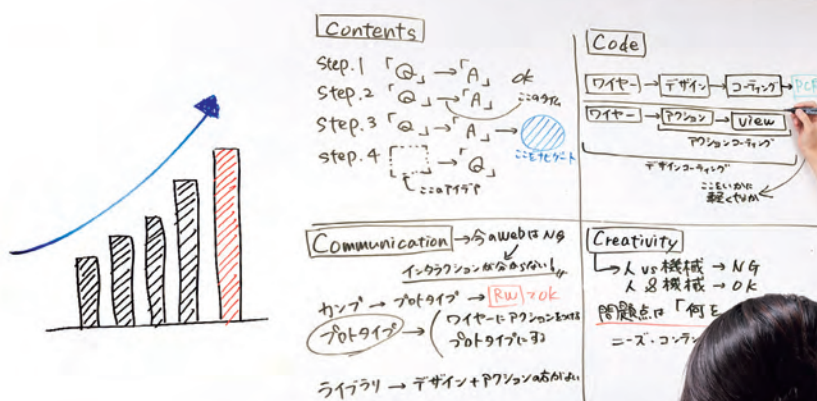 Contents
Step.1 「Q」→「A」 OK
Step.2 「Q」→「A」
ここのタイム
Step.3 「Q」→「A」→
ここをナビゲート
Step.4 →「Q」
ここのアイデア
Code
ワイヤー → デザイン → コーディング → PCR
ワイヤー → アクション → view
アクションコーディング
デザインコーディング
ここをいかに
軽くするか
Communication → 今のwebはNG
インタラクションが分からない!
カンプ → プロトタイプ → RW >OK
プロトタイプ → ワイヤーにアクションをつける
プロトタイプにする
ライブラリ → デザイン+アクションの方がよい
Creativity
人 vs 機械 → NG
人 & 機械 → OK
問題点は「何を
ニーズ・コンテン